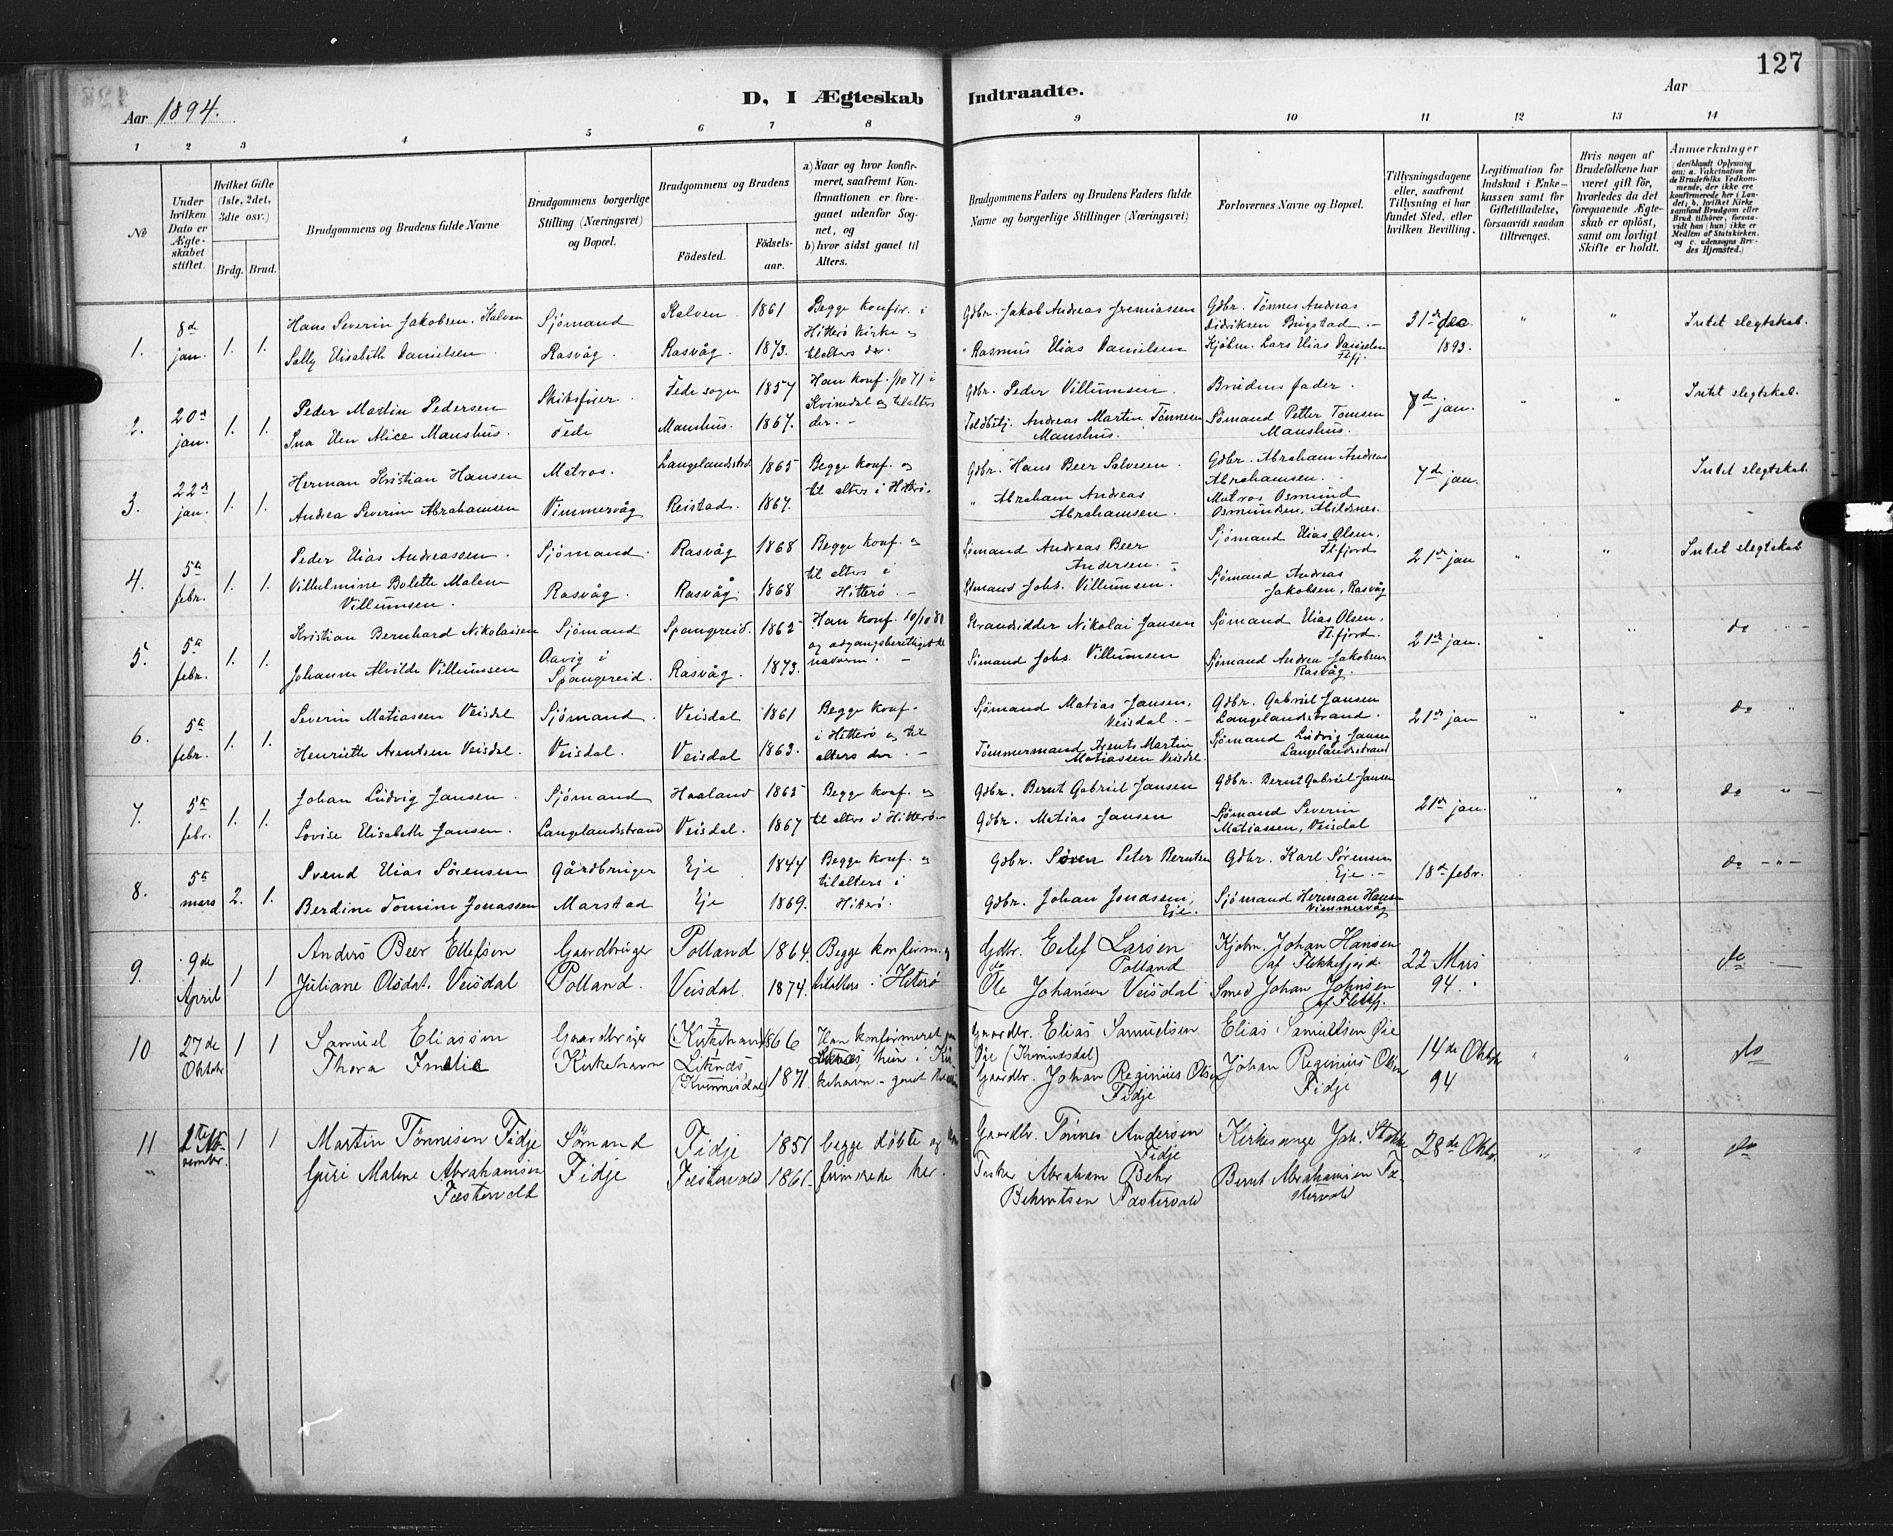 127
Aar 1894.
D, I Ægteskab Indtraadte.
Aar
1 2 3 4 5 6 7 8 9 10 11 12 13 14
No
Under hvilken Dato er Ægteskabet stiftet.
Hvilket Gifte (1ste, 2det, 3die osv.)
Brdg. Brud.
Brudgommens og Brudens fulde Navne
Brudgommens borgerlige Stilling (Næringsvei) og Bopæl.
Brudgommens og Brudens
Fødested.
Fødselsaar.
a) Naar og hvor konfirmeret, saafremt Konfirmationen er foregaaet udenfor Sognet, og
b) hvor sidst gaaet til Alters.
Brudgommens Faders og Brudens Faders fulde Navne og borgerlige Stillinger (Næringsvei)
Forlovernes Navne og Bopæl.
Tillysningsdagene eller, saafremt Tillysning ei har fundet Sted, efter hvilken Bevilling.
Legitimation for Indskud i Enkekassen samt for Giftetilladelse, forsaavidt saadan tiltrænges.
Hvis nogen af Brudefolkene har været gift før, hvorledes da det foregaaende Ægteskab er opløst, samt om lovligt Skifte er holdt.
Anmærkninger
(deriblandt Oplysning om: a. Vakcination for de Brudefolks Vedkommende, der ikke ere konfirmerede her i Landet; b. hvilket Kirkesamfund Brudgom eller Brud tilhører, forsaavidt han (hun) ikke er Medlem af Statskirken, og c. udensogns Brudes Hjemsted.)
1. 8d jan. 1. 1. Hans Severin Jakobsen. Kalven Sjömand Kalven 1861 Begge konfir. i Gdbr. Jakob Andreas Jeremiassen Gdbr. Tönnes Andreas 31te dec. " " Intet slegtskab.
Sally Elisabeth Danielsen Rasvåg. Rasvåg. 1873. Hitterö kirke og tilalters der. " Rasmus Elias Danielsen Didriksen Bugstad. Kjöbm. Lars Elias Danielsen Flfj. 1893.
2. 20d jan. 1. 1. Peder Martin Pedersen Skibsfører. Fede sogn 1857 Han konf. 1/10 71 i Gdbr. Peder Villumsen Brudens fader. 7de jan. " " Intet slegtskab.
Ina Elen Alice Manshus. Fede Manshus. 1867. Kvinesdal og tilalters der. Toldbetj. Andreas Martin Tönnesen Manshus. Sømand Petter Tomsen Manshus.
3. 22d jan. 1. 1. Herman Kristian Hansen Matros. Langelandsstrd 1865 Begge konf. og Gdbr. Hans Beer Salvesen. Gdbr. Abraham Andreas Abrahamsen. 7de jan. Intet slegtskab.
Andrea Severine Abrahamsen Vimmervåg Reistad. 1867. til alters i Hitterö. " Abraham Andreas Abrahamsen. Matros Osmund Osmundsen, Abildsnes.
4. 5te febr. 1. 1. Peder Elias Andreassen. Sjömand. Rasvåg 1868 Begge konf. og Sømand Andreas Beer Andersen. Sjömand Elias Olsen, Flfjord 21de jan " " Intet slegtskab
Vilhelmine Bolette Malene Villumsen. Rasvåg. Rasvåg. 1868 til alters i Hitterö. Sømand Johs. Villumsen. Sjömand Andreas Jakobsen, Rasvåg
5. 5te febr. 1. 1. Kristian Bernhard Nikolaisen Sjömand Spangereid. 1865 Han konf. 10/10 80 Strandsidder Nikolai Jansen Sjömand Elias Olsen, Flfjord. 21de jan. " " do "
Johanne Alvilde Villumsen Aavig i Spangereid. Rasvåg. 1873. og adgangsberettiget til nadvern. Sömand Johs. Villumsen Sjömand Andrea Jakobsen Rasvåg.
6. 5te febr. 1. 1. Severin Matiassen Veisdal Sjömand. Veisdal 1861 Begge konf. Sjömand Matias Jansen, Veisdal. Gdbr. Gabriel Jansen Langelandsstrand. 21de jan " " do "
Henriette Arentsen Veisdal. Veisdal. Veisdal 1863. i Hitterö og til alters der. Tömmermand Arents Martin Matiassen Veisdal. Sjömand Ludvig Jansen Langelandsstrand
7. 5te febr. 1. 1. Johan Ludvig Jansen. Sjömand Haaland 1865 Begge konf. og Gdbr. Bernt Gabriel Jansen Gdbr. Bernt Gabriel Jansen 21de jan. " " do "
Lovise Elisabeth Jansen. Langelandsstrand Veisdal. 1867 til alters i Hitterö. Gdbr. Matias Jansen Sjömand Severin Matiassen, Veisdal
8. 5te mars 2. 1. Svend Elias Sörensen Gårdbruger Eje 1844 Begge konf. og Gdbr. Sören Peter Berntsen Gdbr. Karl Sörensen Eje. 18de febr. do "
Berdine Tomine Jonassen Marstad Eje 1869. tilalters i Hiterö. Gdbr. Johan Jonassen, Eje. Sjömand Herman Hansen Vimmervåg
9. 9de April 1 1 Anders Beer Ellefsen Gaardbruger Polland 1864. Begge konfirm. og Gdbr. Eilef Larsen Polland Kjøbm. Johan Hansen af Flekkefjord 22 Mars do
Juliane Olsdat. Veisdal Polland. Veisdal. 1874. tilalters i Hiterö do Ole Johansen Veisdal Smed Johan Johnsen af Flekkfj. 94.
10 27de Oktobr 1 1 Samuel Eliassøn Gaardbruger (Kirkehavn? 1866 Han konfirmeret Gaardbr. Elias Samuelsen Øie (Kvinnisdal) Elias Samuelsen Øie 14de Oktobr " " do
Thora Emelie Kirkehavn Liknes (Kvinnesdal) 1871. Liknes, hun i Kirkehavn - Gaardbr. Johan Reginius Olsen Fidje Johan Reginius Olsen Fidje 94
11 1ste November. 1 1 Martin Tønnesen Fidje Sømand Fidje 1851 begge døbte og kon Gaardbr. Tønnes Andersen Fidje Kirkesange Joh. 28de Oktbr. " " do
" Guri Malene Abrahamsen Fæstervold Fidje Fæstervold 1861. firmerede her. Abraham Behr Behrntsen Fæstervold Bernt Abrahamsen Fæstervold